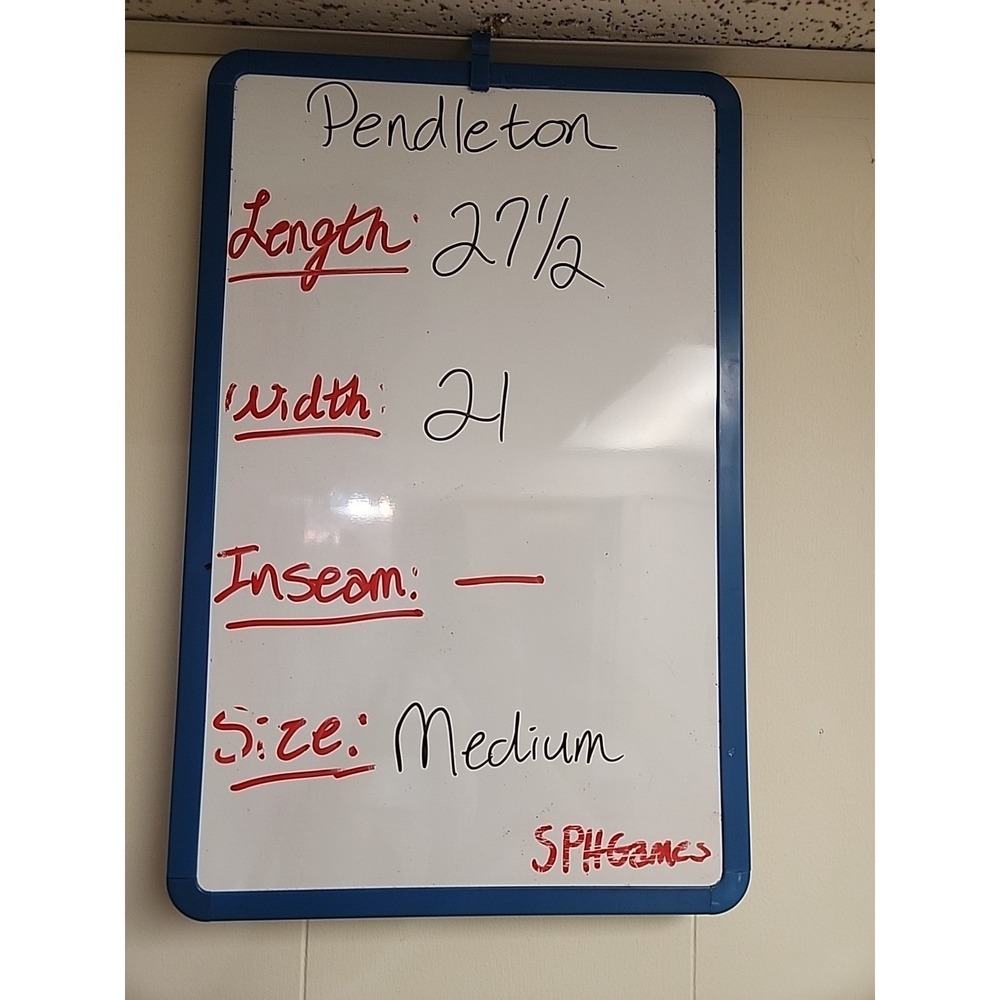 Pendleton
Length: 27 1/2
Width: 21
Inseam: —
Size: Medium
SPHGames